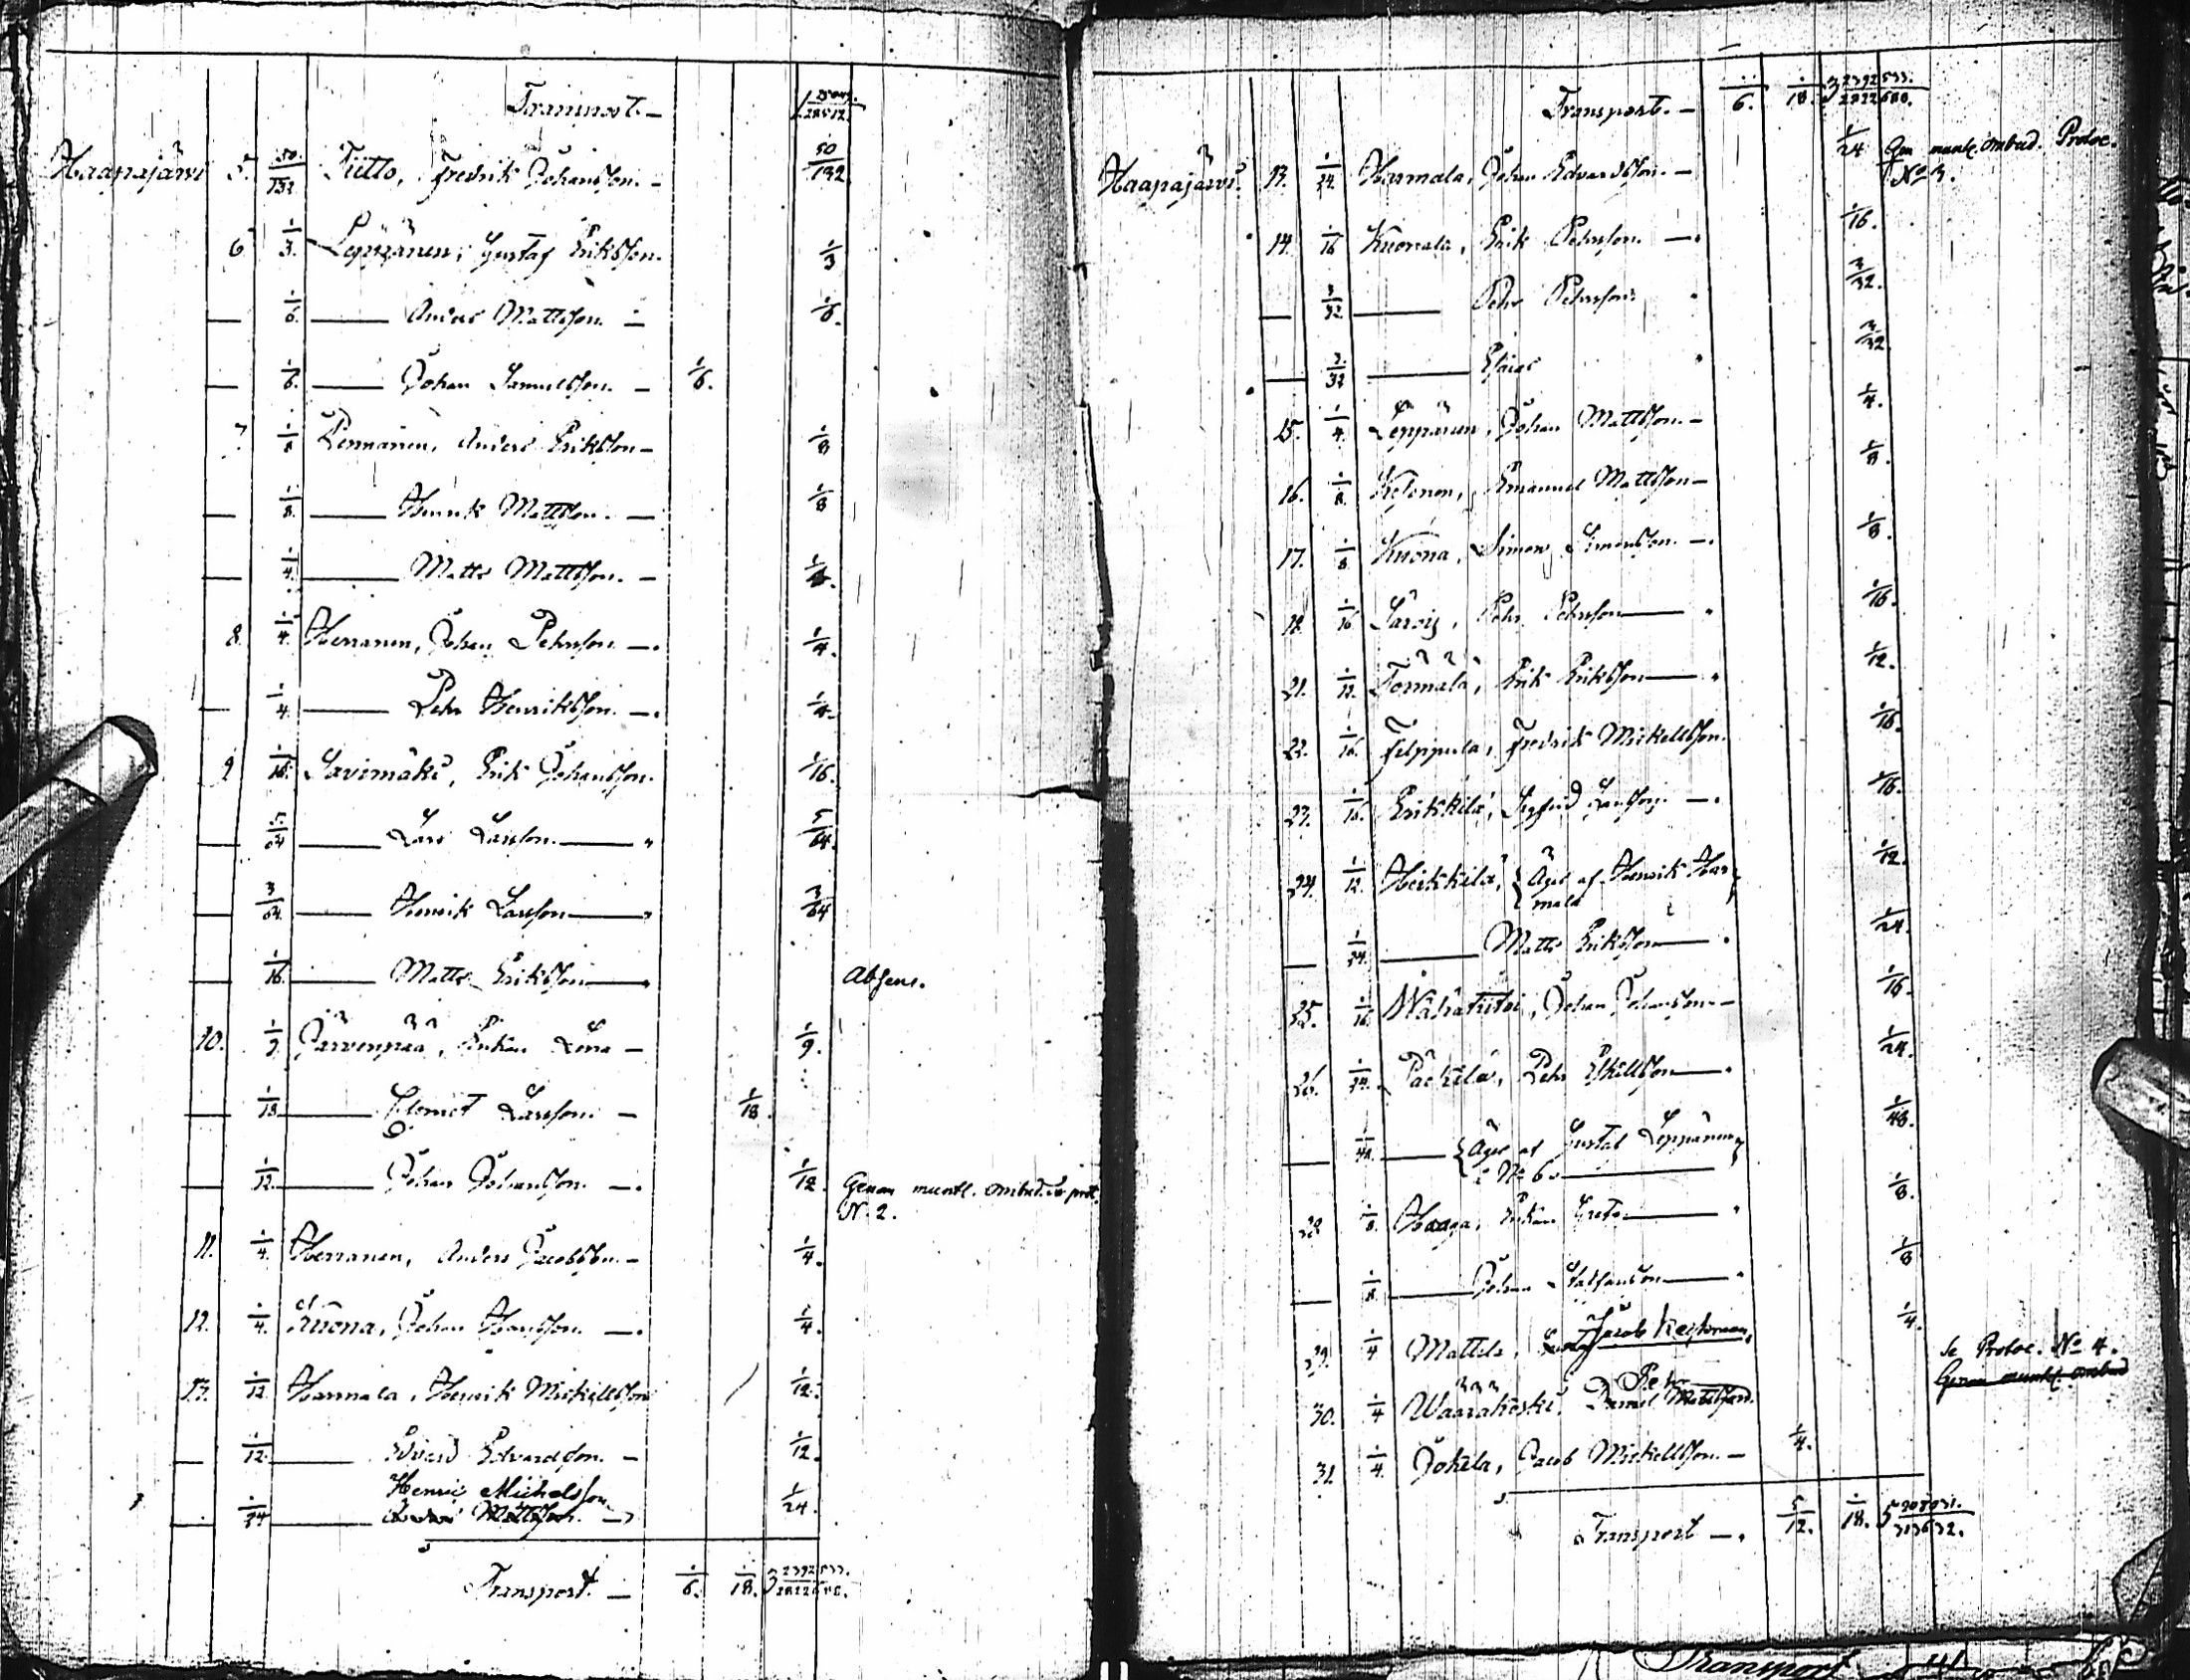 Transport. —
Haapajärvi 5. 50/132 Tiitto, Fredrik Johansson. — 50/132.
6 1/3. Leppänen, Gustaf Eriksson. 1/3
— 1/6. —— Anders Mattsson. — 1/6.
— 1/6. —— Johan Samuelsson. — 1/6.
7 1/8 Pennanen, Anders Eriksson — 1/8
— 1/8. —— Henrik Mattsson. — 1/8
— 1/4. —— Matts Mattsson. — 1/4.
8. 1/4. Herranen, Johan Pehrsson. — 1/4.
— 1/4. —— Pehr Henriksson. — 1/4.
9 1/16. Savimäki, Erik Johansson. 1/16.
— 5/64 —— Lars Larsson. —— 5/64.
— 3/64. —— Henrik Larsson —— 3/64
— 1/16. —— Matts Eriksson —— Absens.
10. 1/9. Järvenpää, Enkan Lena — 1/9.
— 1/18 —— Clemet Larsson. — 1/18.
— 1/12. —— Johan Johansson. — 1/12. Genom muntl. ombud. se prot.
N. 2.
11. 1/4. Herranen, Anders Jacobsson — 1/4.
12. 1/4. Kuona, Johan Hansson. — 1/4.
13. 1/12. Harmala, Henrik Mickelsson 1/12.
1/12. —— Edvard Edvardsson. — 1/12.
Henric Michelsson
1/24 —— Mattsson. — 1/24.
Transport. — 1/6. 1/18. 3 2392533./2822688.
Transport. — 1/6. 1/18. 3 2392533./2822688.
Haapajärvi. 13. 1/24. Harmala, Johan Edvardsson. — 1/24 Gen muntl. ombud. Protoc.
No 3.
14. 1/16 Kuonala, Erik Pehrsson. — 1/16.
— 3/32 —— Pehr Pehrsson. 3/32.
— 3/32 —— Esaias 3/32
15. 1/4. Leppänen, Johan Mattsson. — 1/4.
16. 1/8. Kesonen, Emanuel Mattsson — 1/8.
17. 1/8 Kuona, Simon Simonsson. — 1/8
18. 1/16. Särvi, Pehr Pehrsson —— 1/16.
21. 1/12. Törmälä, Erik Eriksson —— 1/12.
22. 1/16. Filppula, Fredrik Mickelsson. 1/16.
23. 1/16. Erikkilä, Sigfrid Larsson — 1/16.
24. 1/12. Heikkilä, Äges af Henrik Har 1/12.
mala
— 1/24. —— Matts Eriksson —— 1/24.
25. 1/16. Johan Johansson — 1/16.
26. 1/24. Päckilä, Pehr Eskilsson —— 1/24.
— 1/48. —— Äges af Gustaf Leppänen 1/48.
i No 6. ——
28 1/8. Haaga, Enkan Greta —— 1/8.
— 1/8 —— Johan Staffansson —— 1/8
29. 1/4 Mattila, Jacob Keykman, 1/4. se Protoc. No 4.
Genom muntl. ombud
Pehr
30. 1/4 Wäärakoski, Daniel Mattsson.
31. 1/4. Jokela, Jacob Mickelsson. — 1/4.
Transport — 5/12. 1/18. 5
Transport